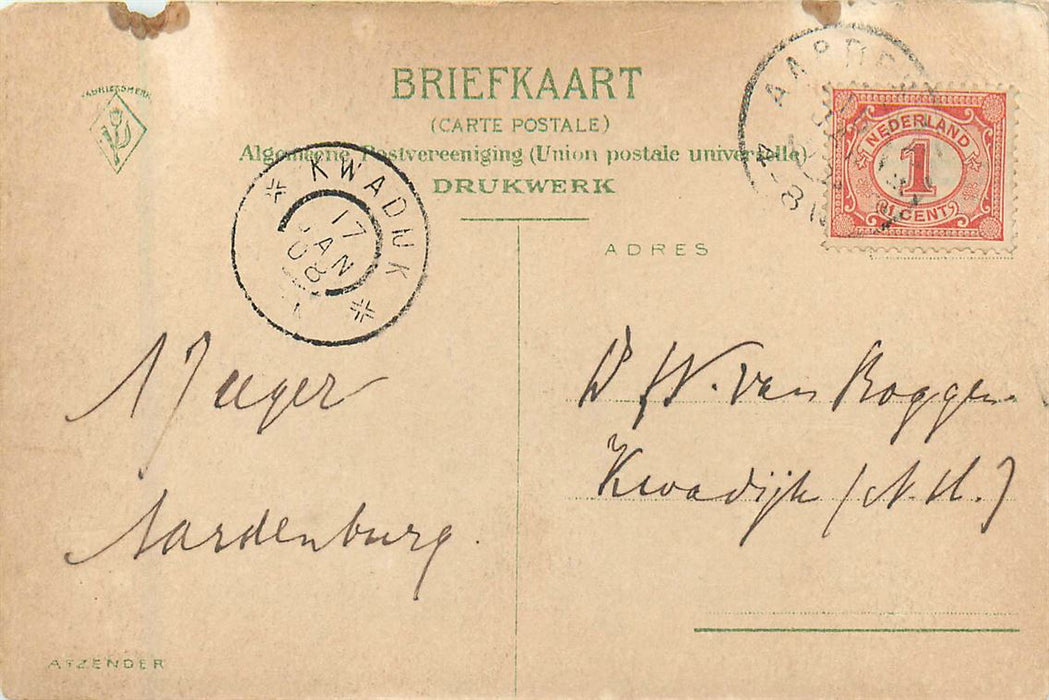 FABRIEKSMERK
BRIEFKAART
(CARTE POSTALE)
Algemeene Postvereeniging (Union postale universelle)
DRUKWERK
ADRES
KWADIJK
17
JAN
08
NEDERLAND
1
CENT
A Jaeger
Aardenburg.
W. van Roggen
Kwadijk (N.H.)
AFZENDER